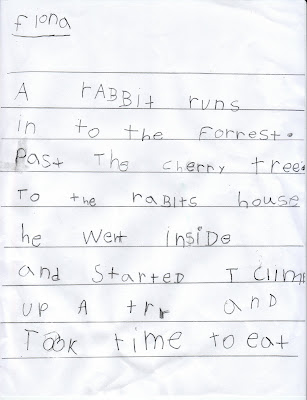 fIona
A rABBit runs
in to the Forrest.
Past The cherry tree.
To the raBits house
he went insiDe
and StarteD T CliM
up A trr anD
Took time to eat